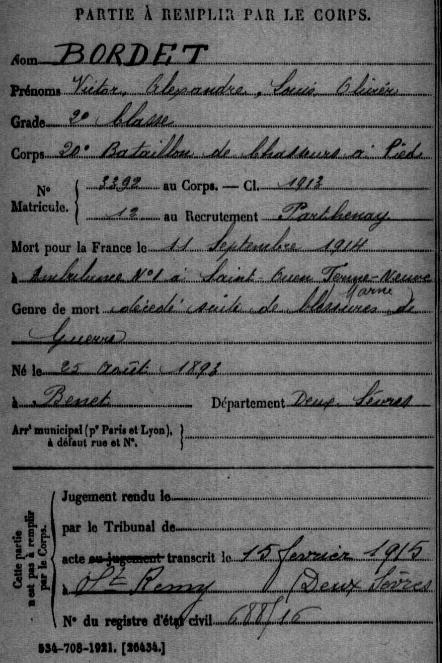 PARTIE À REMPLIR PAR LE CORPS.
Nom BORDET
Prénoms Victor, Alexandre, Louis Olivier
Grade 2e classe
Corps 20e Bataillon de Chasseurs à Pieds
No Matricule. { 3392 au Corps. — Cl. 1913
12 au Recrutement Parthenay
Mort pour la France le 11 Septembre 1914
à Ambulance No1 à Saint-Ouen Terme-Neuve
Marne
Genre de mort décédé suite de blessures de
Guerre
Né le 25 Août 1893
à Benet Département Deux Sèvres
Arrt municipal (pr Paris et Lyon), à défaut rue et No. }
Cette partie n'est pas à remplir par le Corps.
Jugement rendu le
par le Tribunal de
acte ou jugement transcrit le 15 février 1915
à St Remy (Deux Sèvres
No du registre d'état civil 688/16
534-708-1921. [26434.]